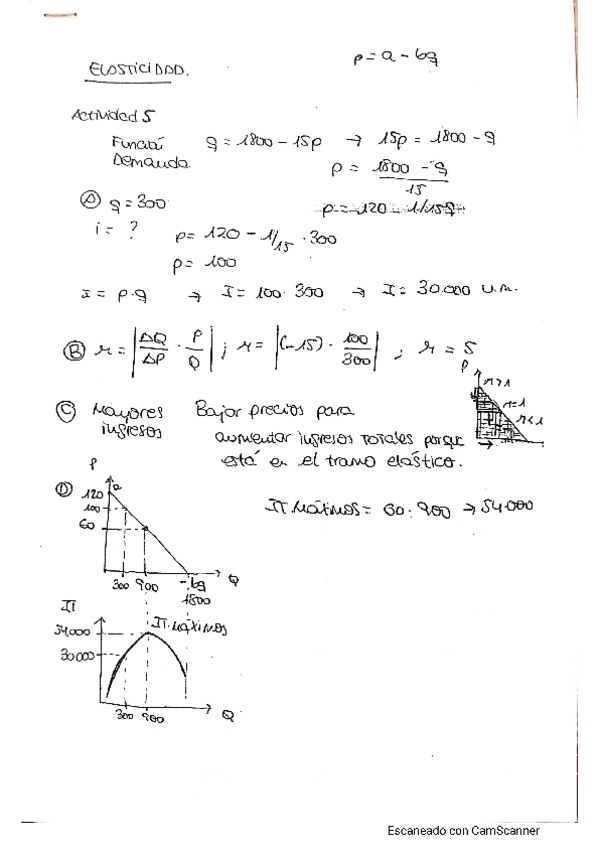 p = a - bq
ELASTICIDAD.
Actividad 5
Función Demanda q = 1800 - 15p → 15p = 1800 - q
p = 1800 - q / 15
p = 120 - 1/15q
Ⓐ q = 300
i = ? p = 120 - 1/15 · 300
p = 100
I = p·q → I = 100 · 300 → I = 30.000 u.m.
Ⓑ r = |ΔQ/ΔP · P/Q| ; r = |(-15) · 100/300| ; r = 5
Ⓒ Mayores ingresos Bajar precios para
aumentar ingresos totales porque
está en el tramo elástico.
P
r>1
r=1
r<1
Ⓓ
P
120
a
100
60
300 900 -bq Q
1800
IT máximos = 60 · 900 → 54000
IT
54000
IT máximos
30000
300 900 Q
Escaneado con CamScanner